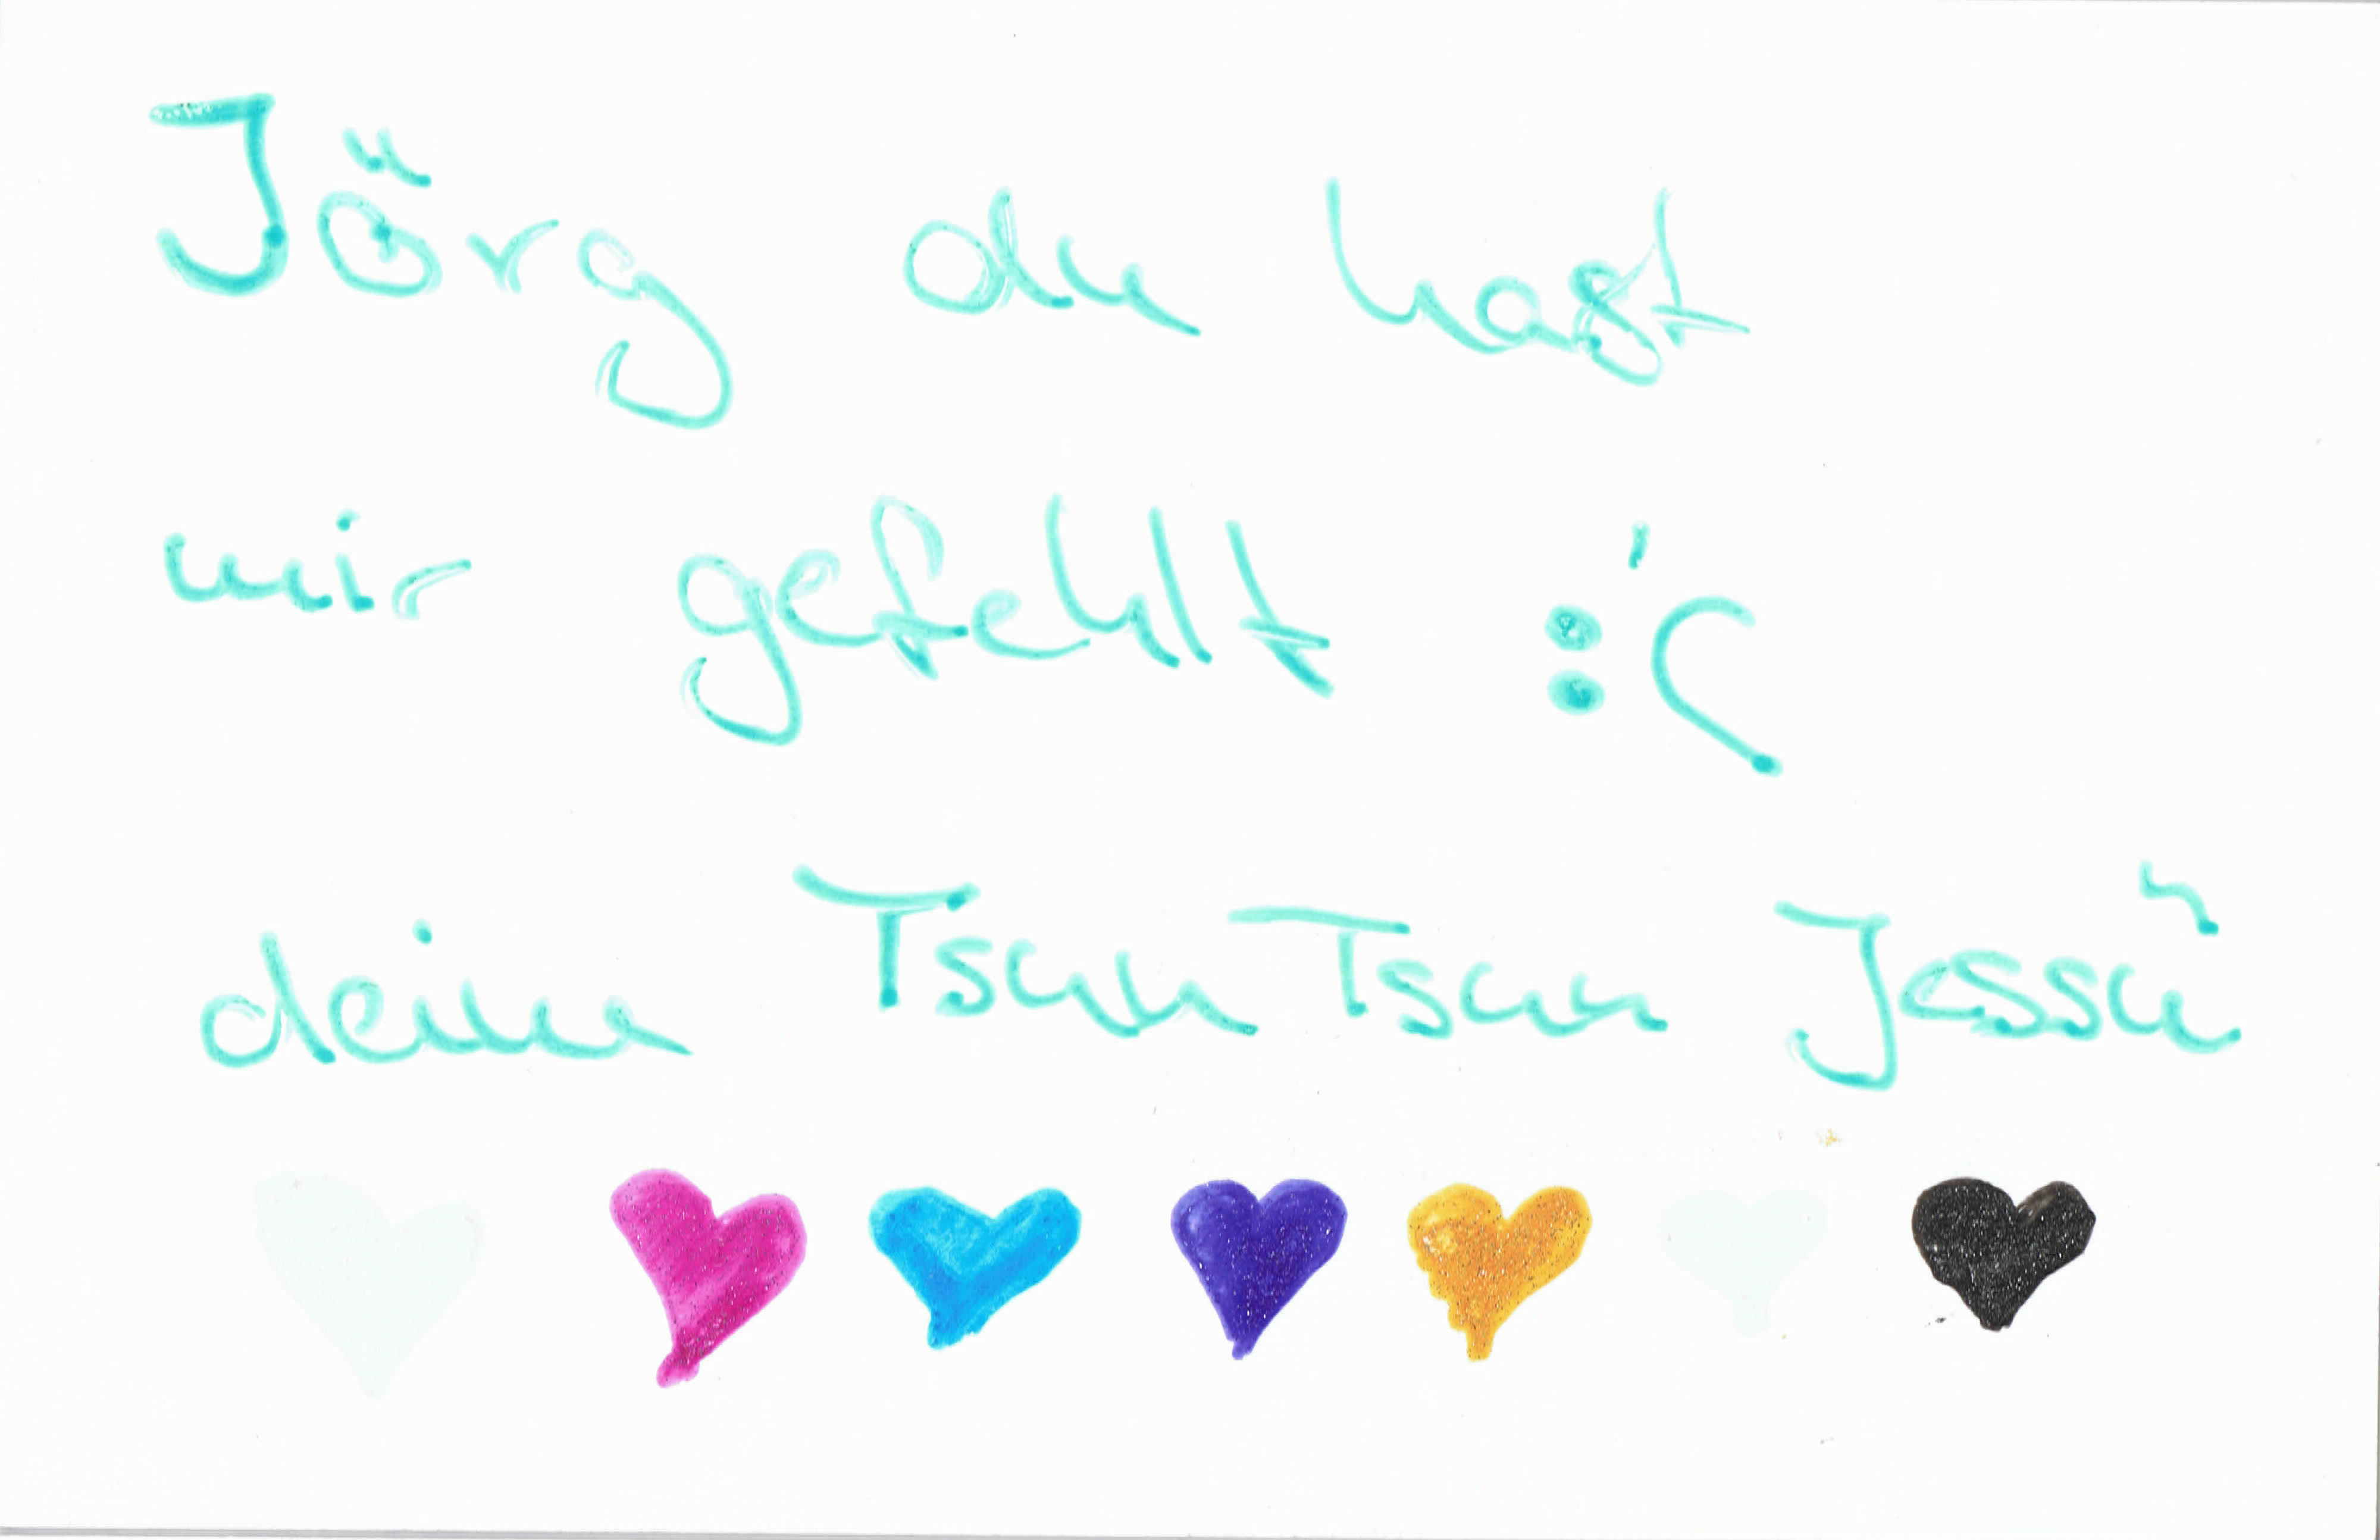 Jörg du hast
mir gefehlt :'(
deine Tsun Tsun Jessü